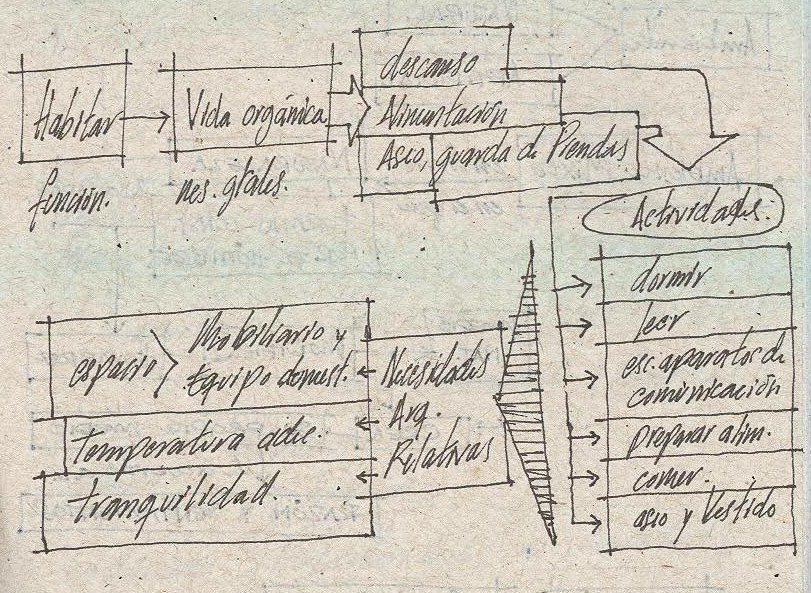 Habitar
función.
Vida orgánica
nes. gtales.
descanso
Alimentación
Aseo, guarda de Prendas
Actividades:
dormir
leer
esc. aparatos de
comunicación
preparar alim.
comer.
aseo y Vestido
Necesidades
Arq.
Relativas
espacio > Mobiliario y
Equipo domest.
Temperatura adec.
tranquilidad.